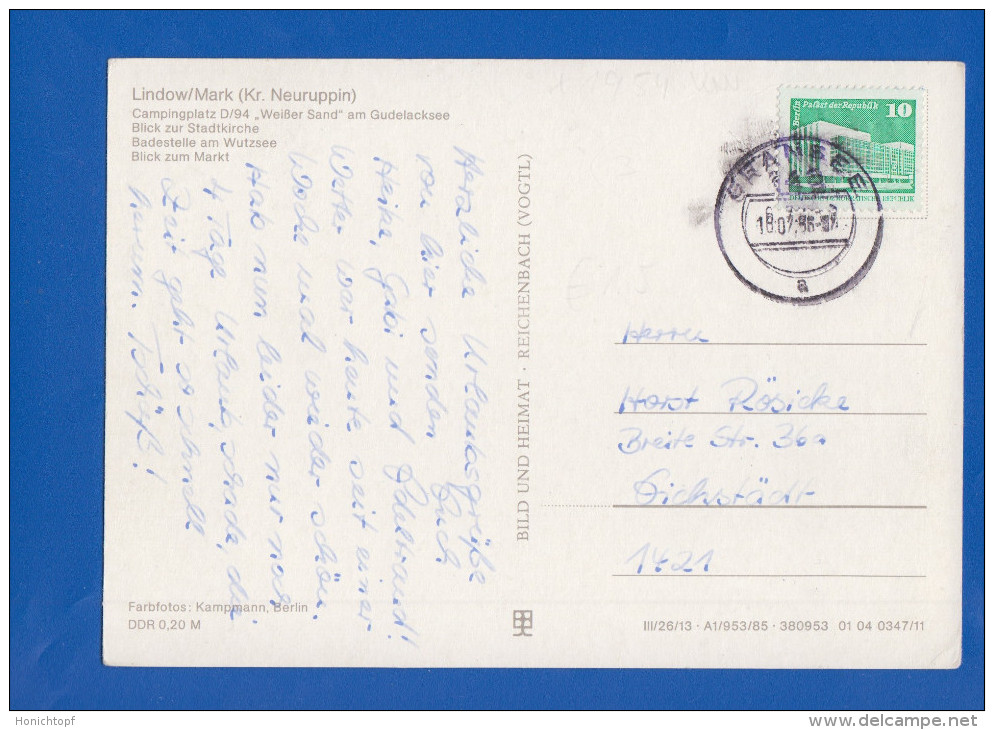 Lindow/Mark (Kr. Neuruppin)
Campingplatz D/94 „Weißer Sand“ am Gudelacksee
Blick zur Stadtkirche
Badestelle am Wutzsee
Blick zum Markt
Herzliche Urlaubsgrüße
von hier senden Euch
Heike, Gabi und
Wetter war heute seit einer
Woche mal wieder schön.
Hab nun leider nur noch
4 Tage Urlaub, schade, die
Zeit geht so schnell
herum. Tschüß!
Farbfotos: Kampmann, Berlin
DDR 0,20 M
BILD UND HEIMAT · REICHENBACH (VOGTL)
Berlin Palast der Republik 10
GRANSEE
a
Herrn
Horst Rösicke
Breite Str. 36a
Eichstädt
1421
III/26/13 · A1/953/85 · 380953 01 04 0347/11
Honichtopf
www.delcampe.net